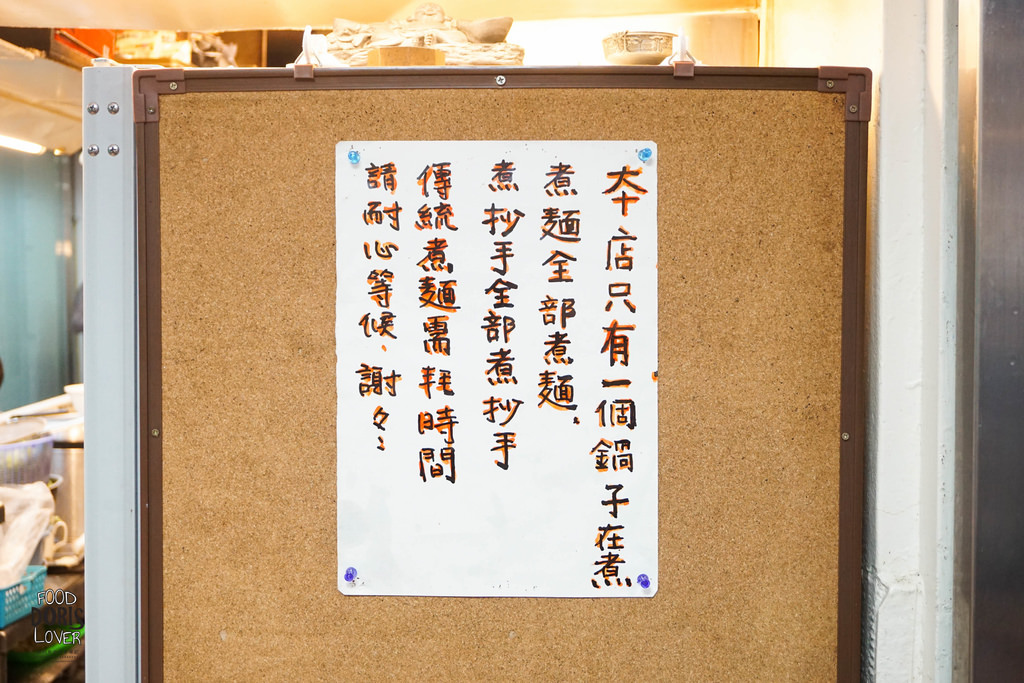 本店只有一個鍋子在煮
煮麵全部煮麵、
煮抄手全部煮抄手
傳統煮麵需耗時間
請耐心等候、謝々
FOOD
DORIS
LOVER